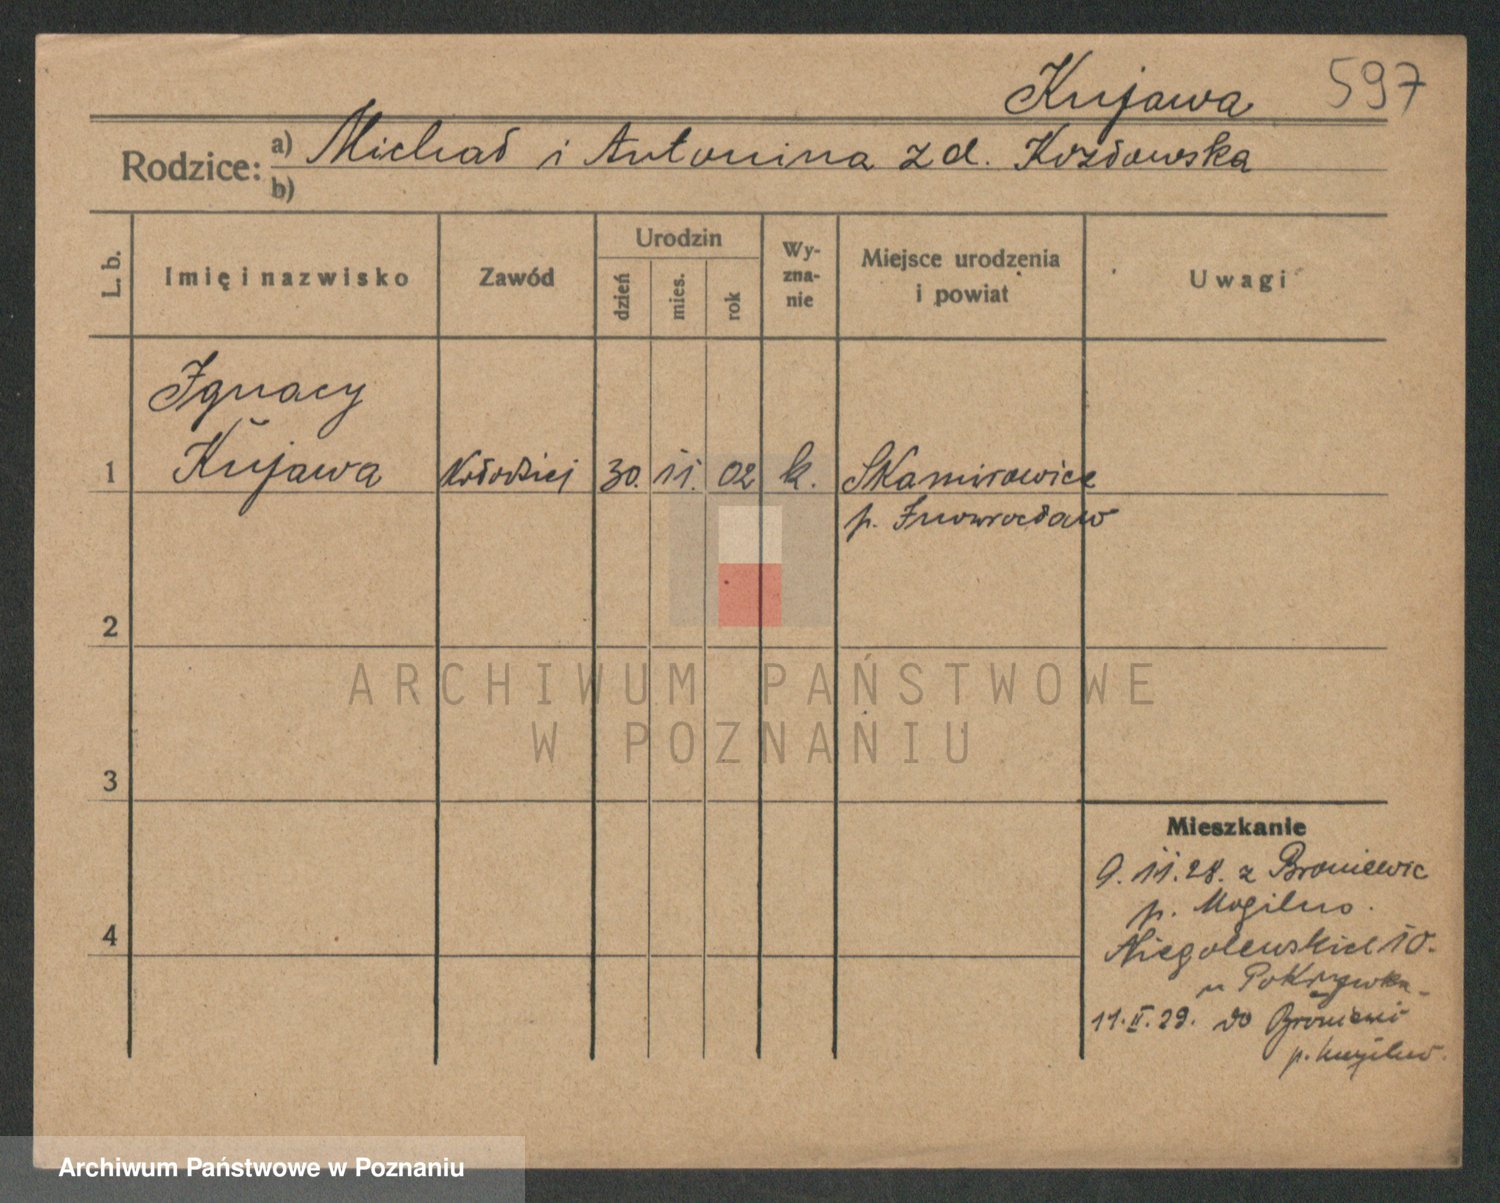 Kujawa 597
Rodzice: a) Michał i Antonina z d. Kozłowska
b)
L. b. Imię i nazwisko Zawód Urodzin dzień mies. rok Wy-zna-nie Miejsce urodzenia i powiat Uwagi
Ignacy
1 Kujawa Kołodziej 30. 11. 02 k. Skamirowice
p. Inowrocław
2
3
4
Mieszkanie
9. 11. 28. z Broniewic
p. Mogilno.
Niegolewskich 10.
u Pokrzywka
11. II. 29. do
p. Mogilno.
ARCHIWUM PAŃSTWOWE
W POZNANIU
Archiwum Państwowe w Poznaniu